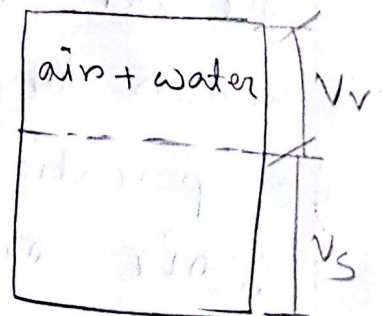 air + water
Vv
Vs